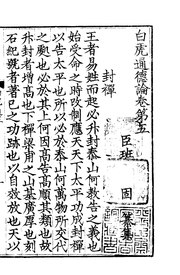 白虎通德論卷第五
臣班固纂集
封禪
王者易姓而起必升封泰山何教告之義也
始受命之時改制應天天下太平功成封禪
以告太平也所以必於泰山何萬物所交代
之處也必於其上何因高告高順其類也故
升封者增高也下禪梁甫之山基廣厚也刻
石紀號者著己之功跡也以自效放也天以